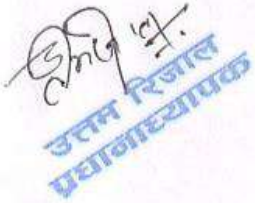 उत्तम रिजाल
प्रधानाध्यापक